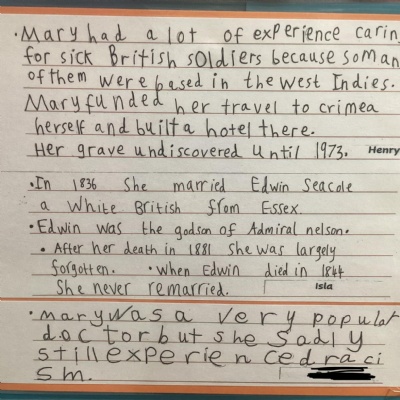 • Mary had a lot of experience carin
for sick British soldiers because so man
of them were based in the west Indies.
Mary funded her travel to crimea
herself and built a hotel there.
Her grave undiscovered until 1973. Henry
• In 1836 She married Edwin Seacole
a White British from Essex.
• Edwin was the godson of Admiral nelson.
• After her death in 1881 She was largely
forgotten. • when Edwin died in 1844
She never remarried. Isla
• mary was a very popular
doctor but she Sadly
still experienced raci
sm.